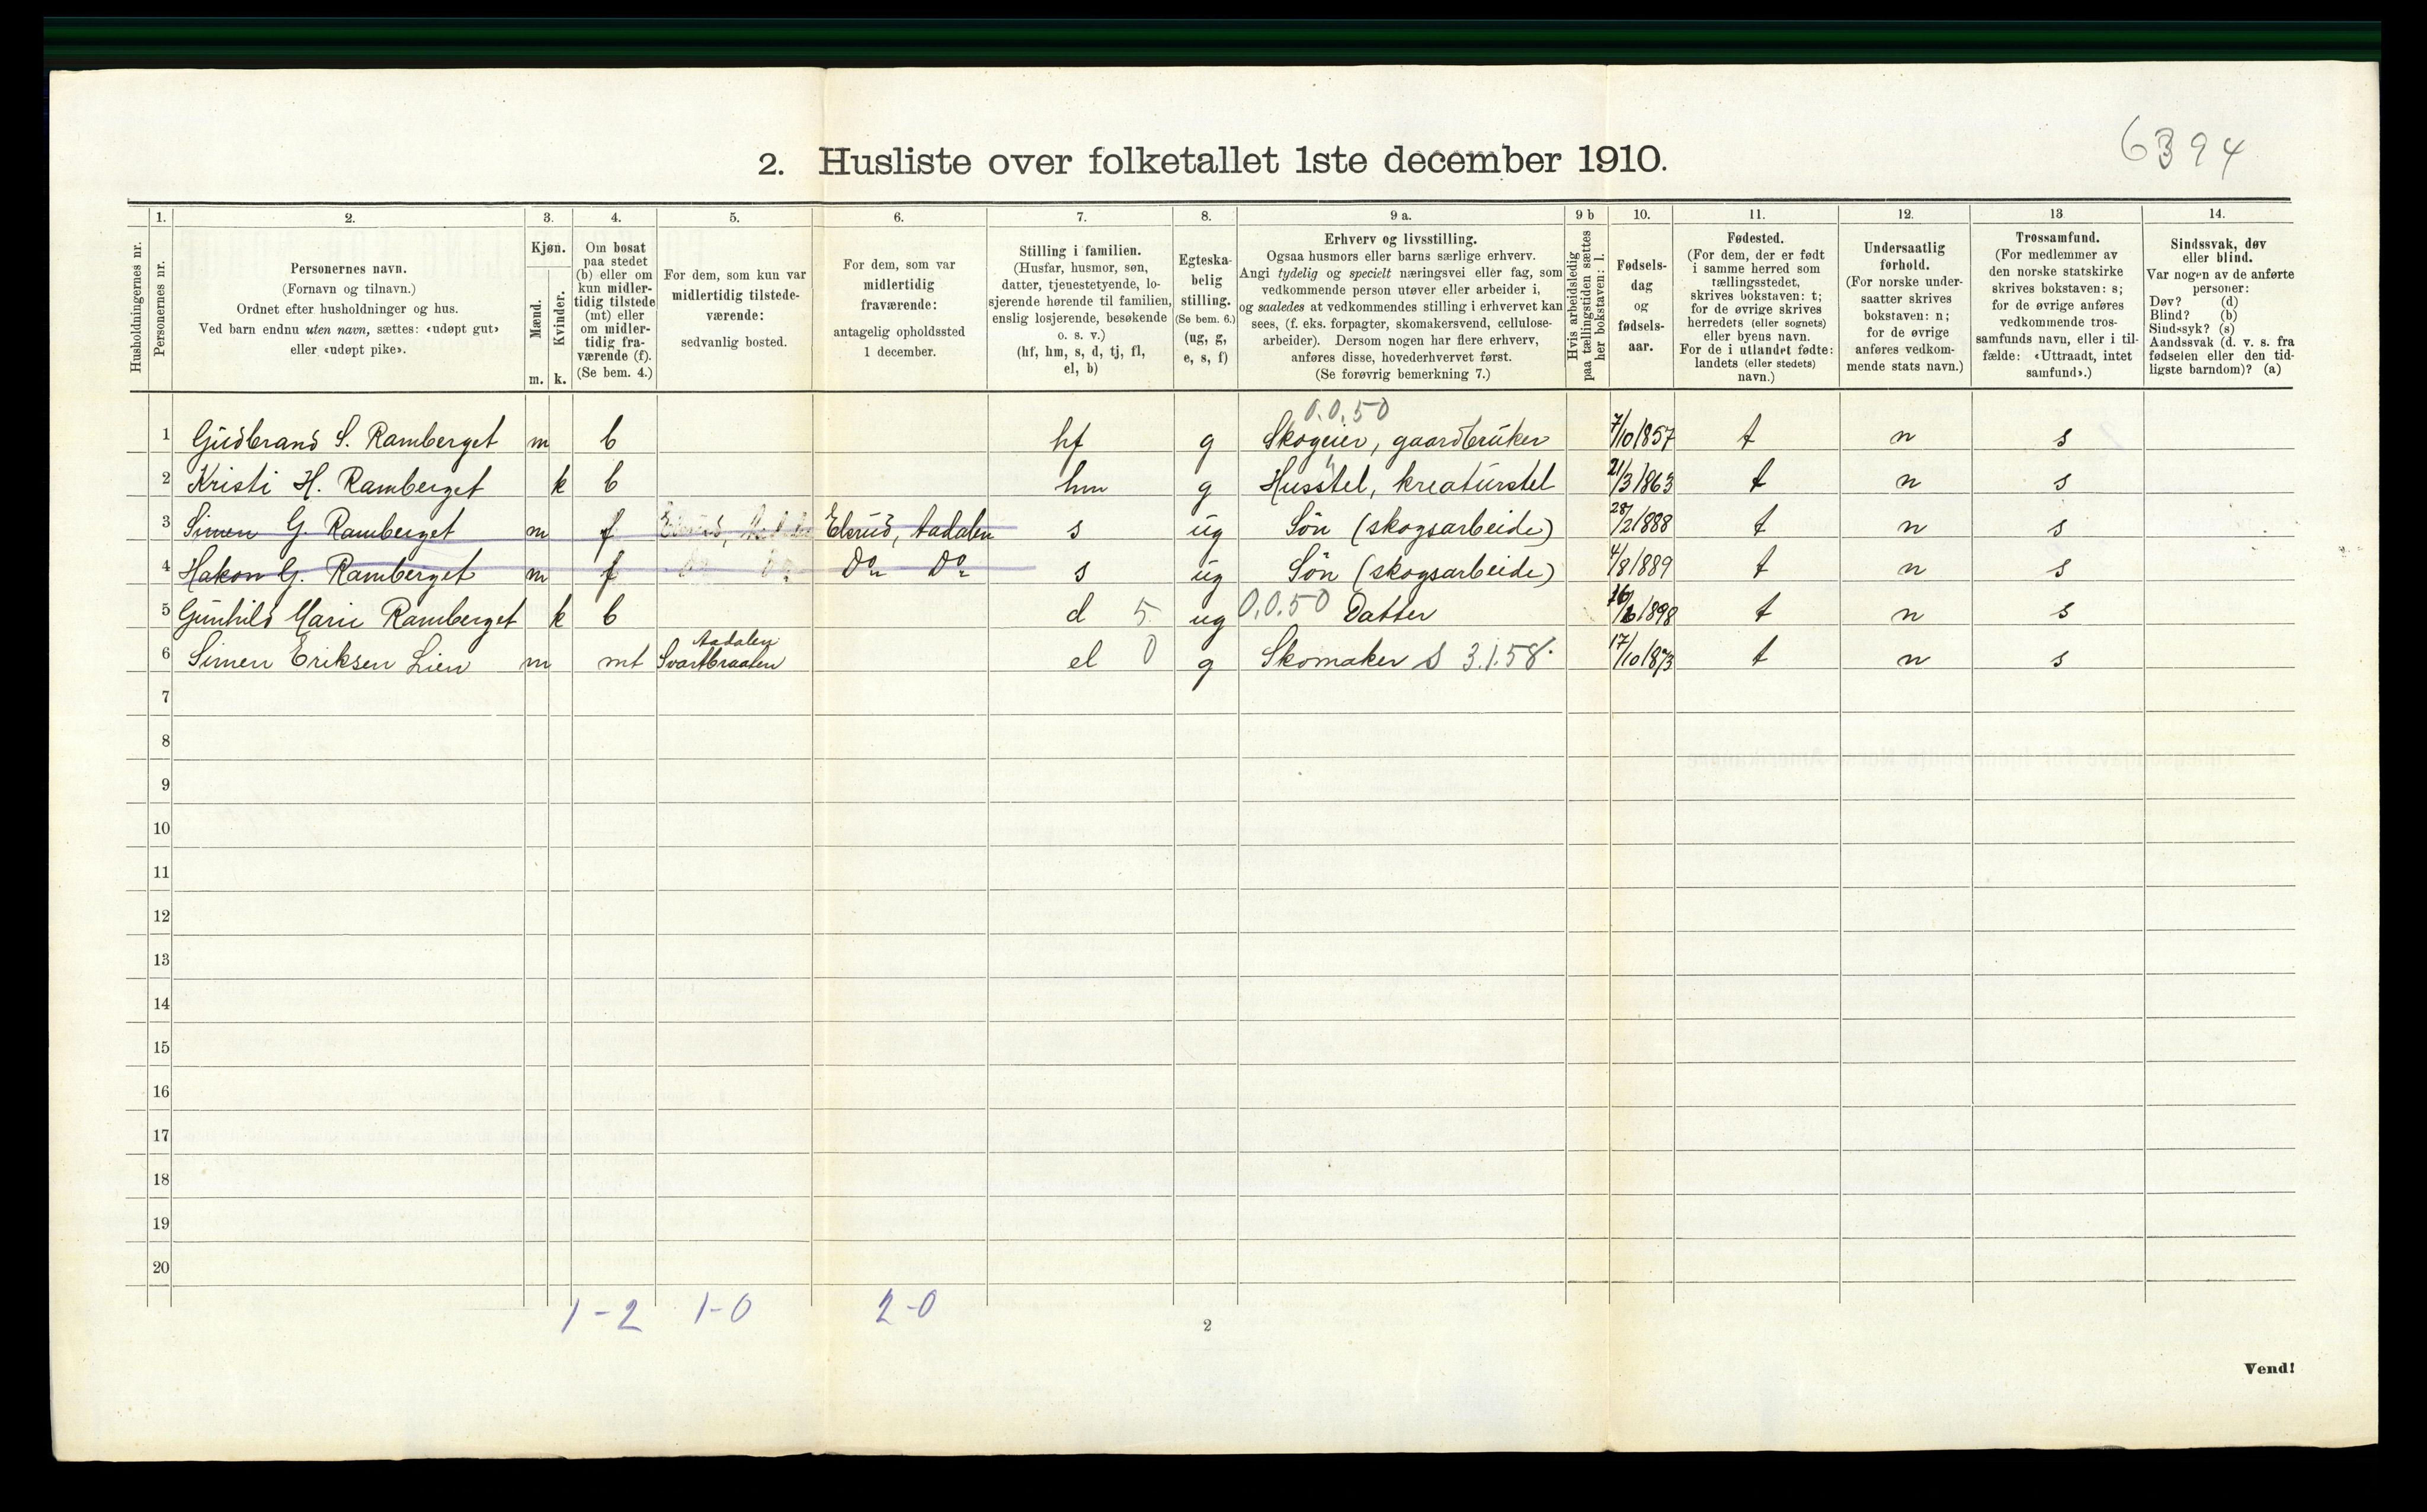 6394
2. Husliste over folketallet 1ste december 1910.
Husholdningernes nr.
1.
Personernes nr.
2.
Personernes navn.
(Fornavn og tilnavn.)
Ordnet efter husholdninger og hus.
Ved barn endnu uten navn, sættes: «udøpt gut»
eller «udøpt pike».
3.
Kjøn.
Mænd.
Kvinder.
m. k.
4.
Om bosat
paa stedet
(b) eller om
kun midler-
tidig tilstede
(mt) eller
om midler-
tidig fra-
værende (f).
(Se bem. 4.)
5.
For dem, som kun var
midlertidig tilstede-
værende:
sedvanlig bosted.
6.
For dem, som var
midlertidig
fraværende:
antagelig opholdssted
1 december.
7.
Stilling i familien.
(Husfar, husmor, søn,
datter, tjenestetyende, lo-
sjerende hørende til familien,
enslig losjerende, besøkende
o. s. v.)
(hf, hm, s, d, tj, fl,
el, b)
8.
Egteska-
belig
stilling.
(Se bem. 6.)
(ug, g,
e, s, f)
9 a.
Erhverv og livsstilling.
Ogsaa husmors eller barns særlige erhverv.
Angi tydelig og specielt næringsvei eller fag, som
vedkommende person utøver eller arbeider i,
og saaledes at vedkommendes stilling i erhvervet kan
sees, (f. eks. forpagter, skomakersvend, cellulose-
arbeider). Dersom nogen har flere erhverv,
anføres disse, hovederhvervet først.
(Se forøvrig bemerkning 7.)
9 b
Hvis arbeidsledig
paa tællingstiden sættes
her bokstaven: l.
10.
Fødsels-
dag
og
fødsels-
aar.
11.
Fødested.
(For dem, der er født
i samme herred som
tællingsstedet,
skrives bokstaven: t;
for de øvrige skrives
herredets (eller sognets)
eller byens navn.
For de i utlandet fødte:
landets (eller stedets)
navn.)
12.
Undersaatlig
forhold.
(For norske under-
saatter skrives
bokstaven: n;
for de øvrige
anføres vedkom-
mende stats navn.)
13
Trossamfund.
(For medlemmer av
den norske statskirke
skrives bokstaven: s;
for de øvrige anføres
vedkommende tros-
samfunds navn, eller i til-
fælde: «Uttraadt, intet
samfund».)
14.
Sindssvak, døv
eller blind.
Var nogen av de anførte
personer:
Døv? (d)
Blind? (b)
Sindssyk? (s)
Aandssvak (d. v. s. fra
fødselen eller den tid-
ligste barndom)? (a)
0.0.50
1 Gudbrand S. Ramberget m b hf g Skogeier, gaardbruker 7/10 1857 t n s
2 Kristi H. Ramberget k b hm g Husstel, kreaturstel 21/3 1863 t n s
3 Simen G. Ramberget m f Elsrud, Aadalen s ug Søn (skogsarbeide) 28/2 1888 t n s
4 Hakon G. Ramberget m f Do Do s ug Søn (skogsarbeide) 4/8 1889 t n s
5 Gunhild Marie Ramberget k b d 5 ug 0.0.50 Datter 16/6 1898 t n s
Aadalen
6 Simen Eriksen Lien m mt Svartbraaten el 0 g Skomaker S 3.1.58. 17/10 1873 t n s
7
8
9
10
11
12
13
14
15
16
17
18
19
20
1-2 1-0 2-0
2
Vend!